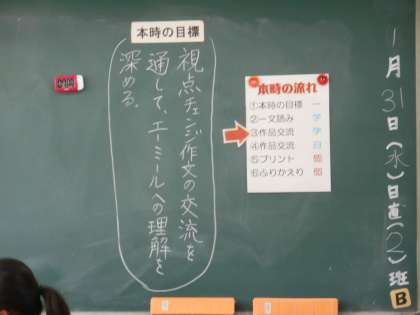 1月31日(水)日直(2)班
B
本時の目標
視点チェンジ作文の交流を
通して、エーミールへの理解を
深める。
本時の流れ
①本時の目標 一
②一文読み 学
③作品交流 学
④作品交流 自
⑤プリント 個
⑥ふりかえり 個